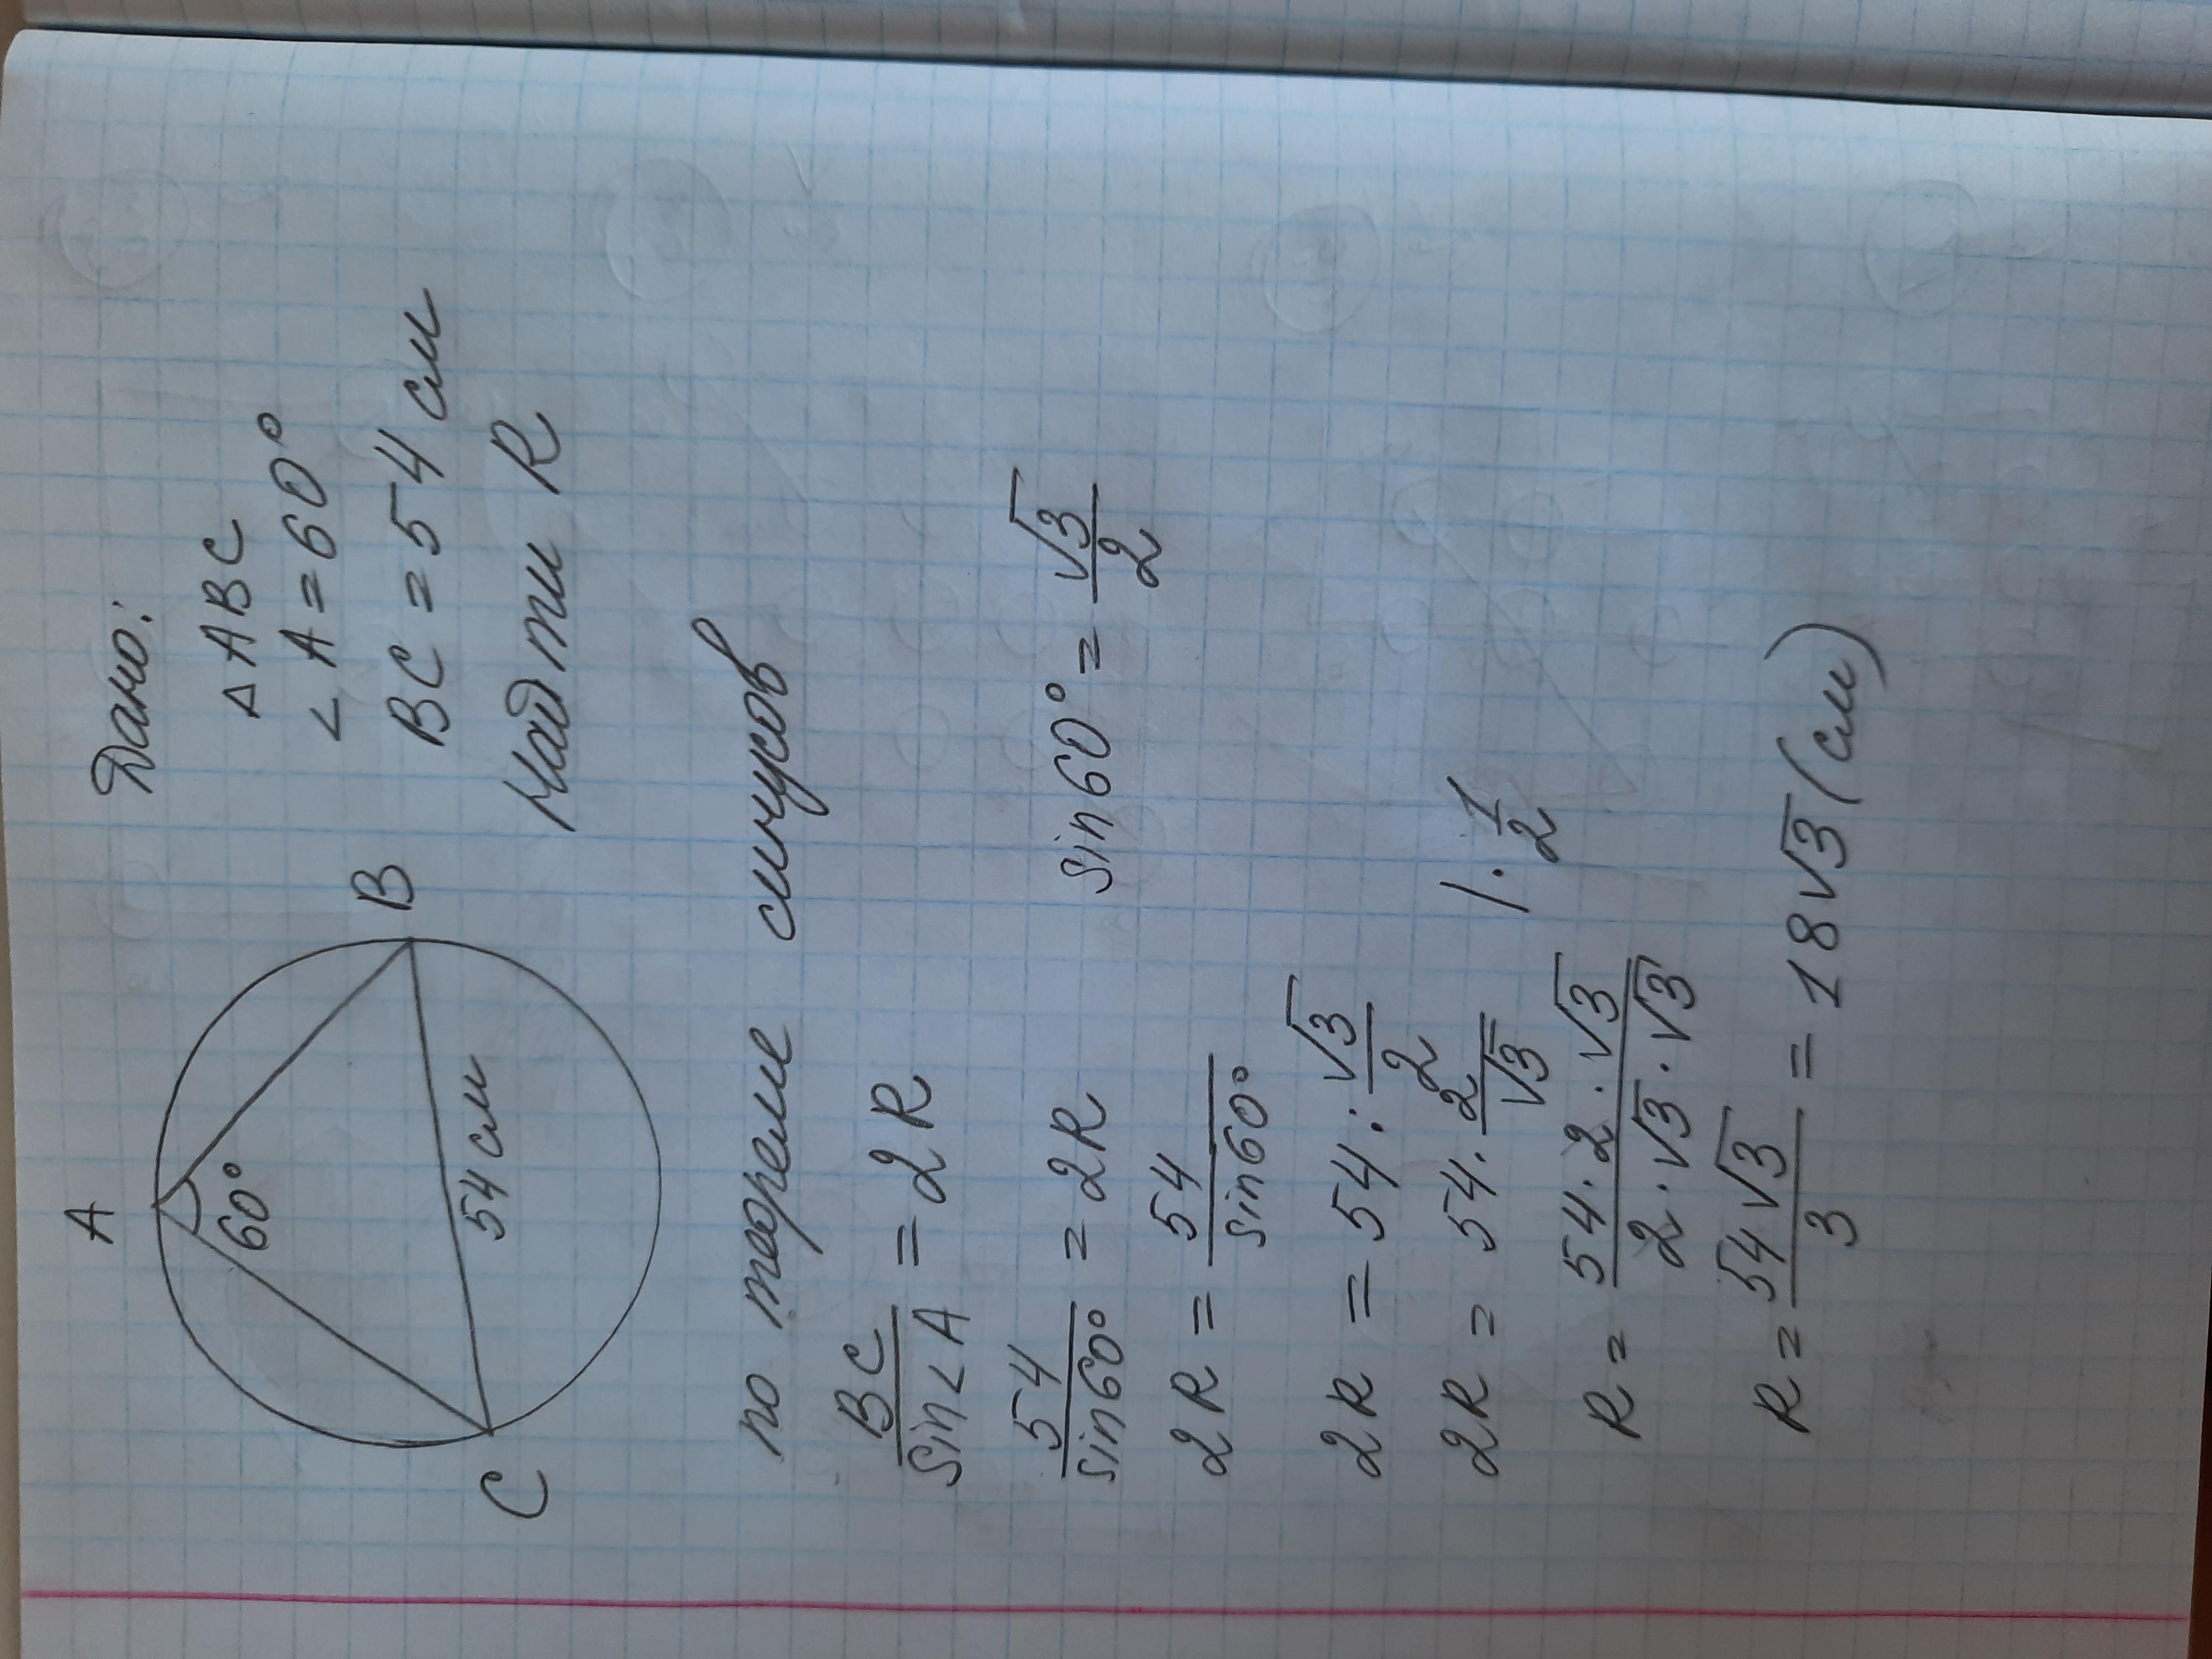 A
60°
B
54 см
C
Дано:
△ ABC
∠ A = 60°
BC = 54 см
Надти R
по теореме синусов
BC/sin∠A = 2R
54/sin60° = 2R sin60° = √3/2
2R = 54/sin60°
2R = 54 : √3/2
2R = 54 · 2/√3 | · 1/2
R = 54·2·√3/2·√3·√3
R = 54√3/3 = 18√3 (см)